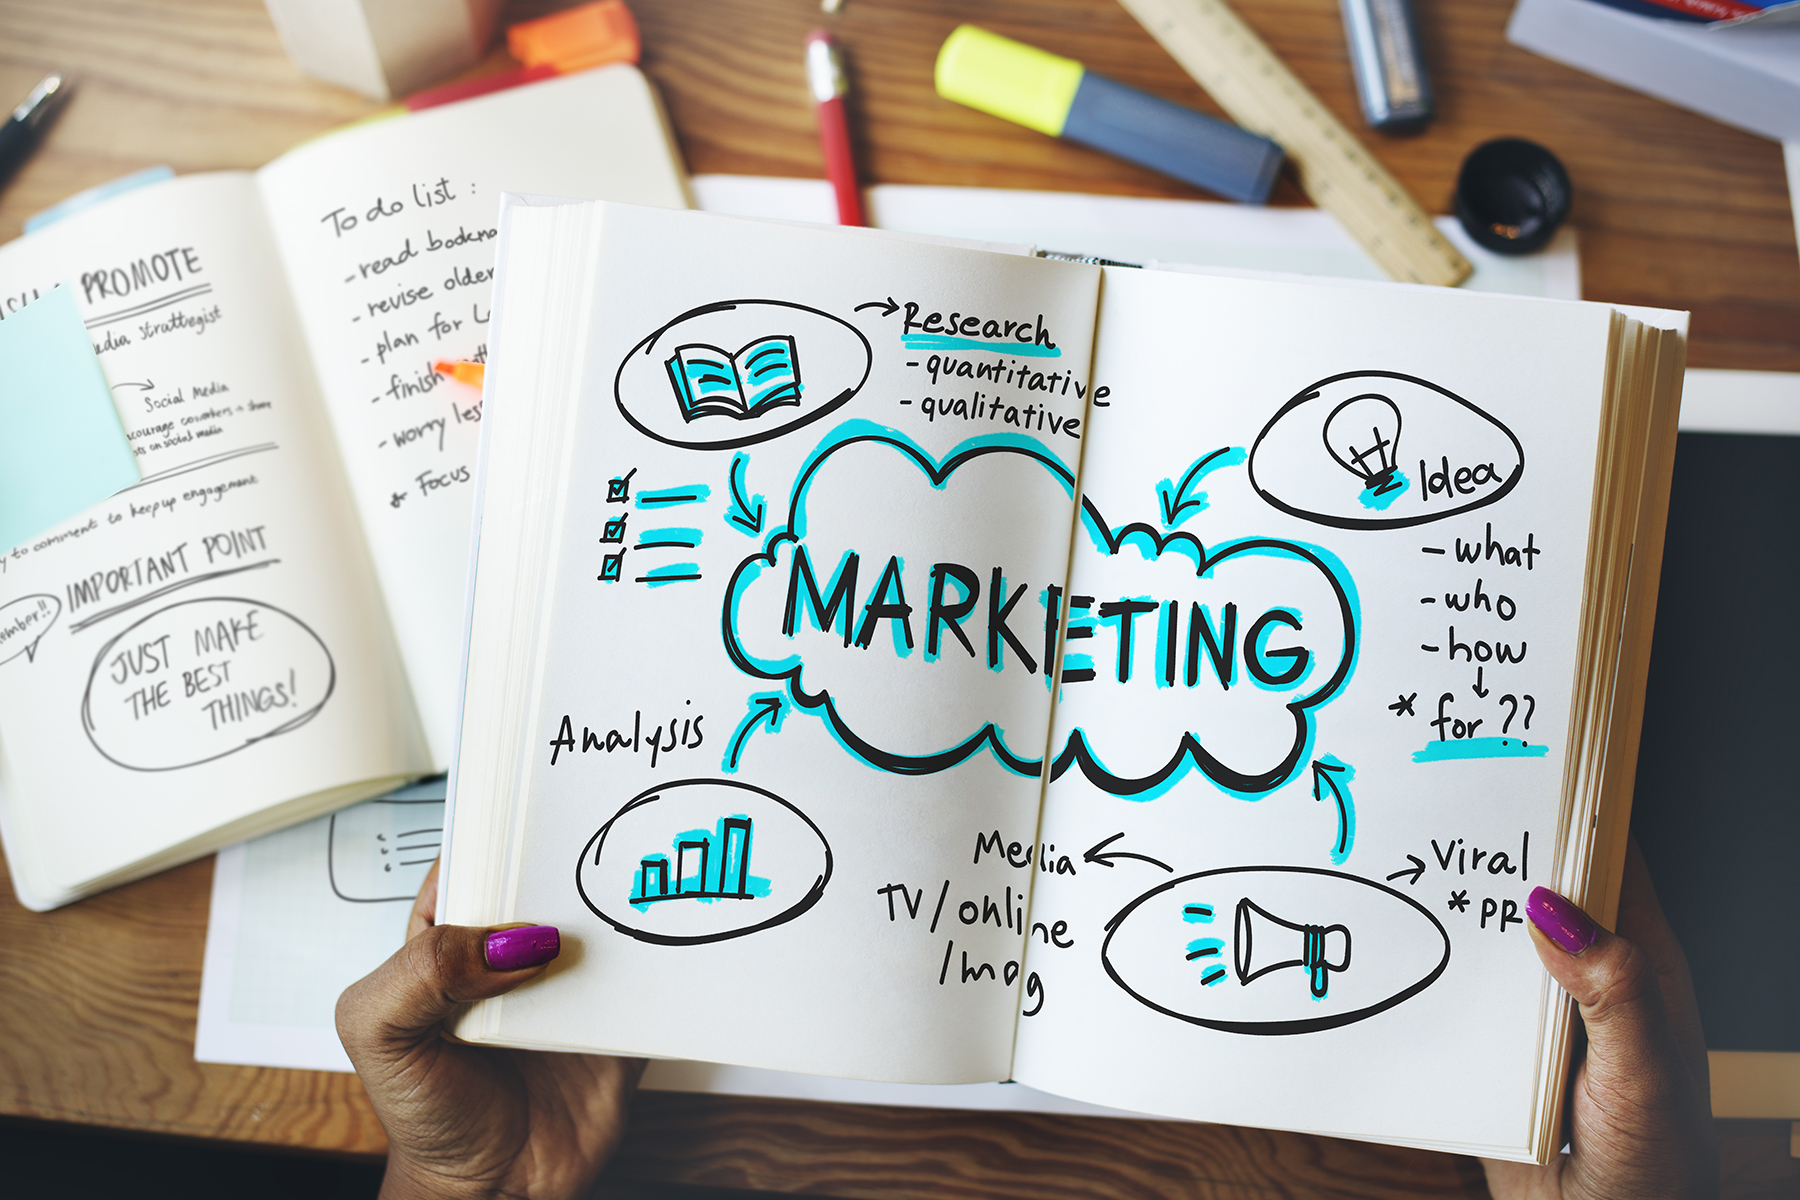 PROMOTE
media stratthegist
Social Media
coworkers to share
on social media
to comment to keep up engagement
IMPORTANT POINT
JUST MAKE
THE BEST
THINGS!
To do list :
- read
- revise older
- plan for
- finish
- worry
* Focus
Research
- quantitative
- qualitative
MARKETING
Idea
- what
- who
- how
* for ??
Analysis
Media
TV / online
/ mag
Viral
* PR